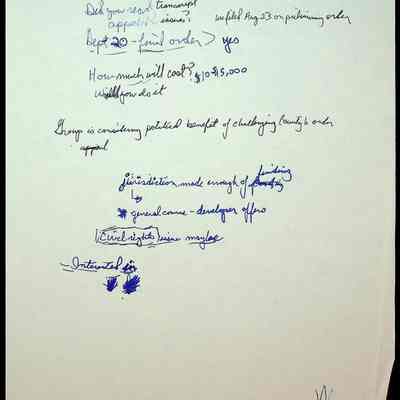 Did you read transcript
appealable issues? we filed Aug 23 on preliminary order
Sept 20 - final order > yes
How much will cost? $10-$15,000
Will you do it
Group is considering potential benefit of challenging County's order
appeal
jurisdiction made enough of finding
general course - developer offers
Civil rights issue maybe
- Interested in